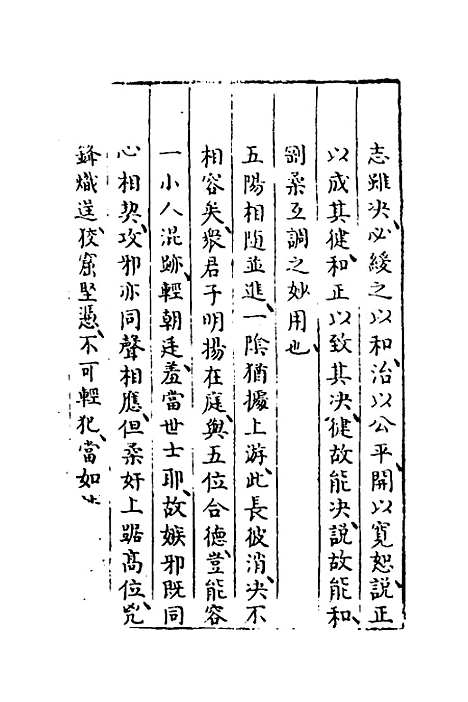 志雖决必緩之以和治以公平開以寬恕說正
以成其健和正以致其决健故能决說故能和
剛柔互調之妙用也
五陽相随並進一陰猶據上游此長彼消决不
相容矣衆君子明揚在庭與五位合德豈能容
一小人混跡輕朝廷羞當世士耶故嫉邪既同
心相契攻邪亦同聲相應但柔奸上踞髙位兇
鋒熾逞狡窟堅憑不可輕犯當如